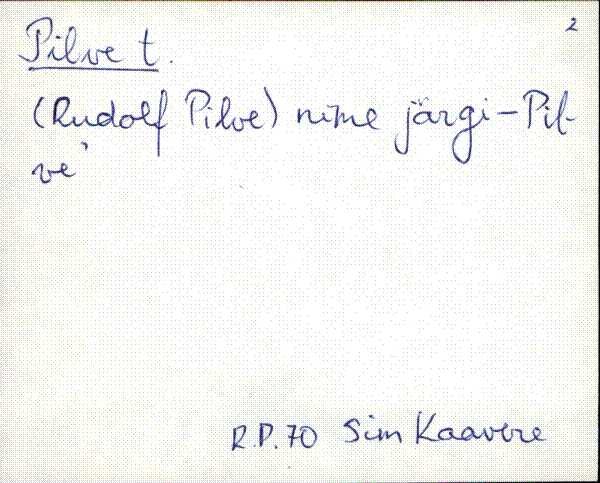 2
Pilve t.
(Rudolf Pilve) nime järgi - Pil-
ve'
R.P. 70 Sim Kaavere